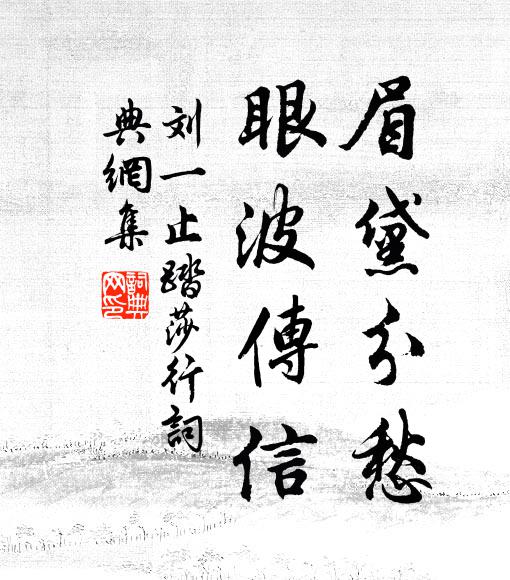 眉黛分愁
眼波傳信
刘一止踏莎行詞
典網集
詞典网印